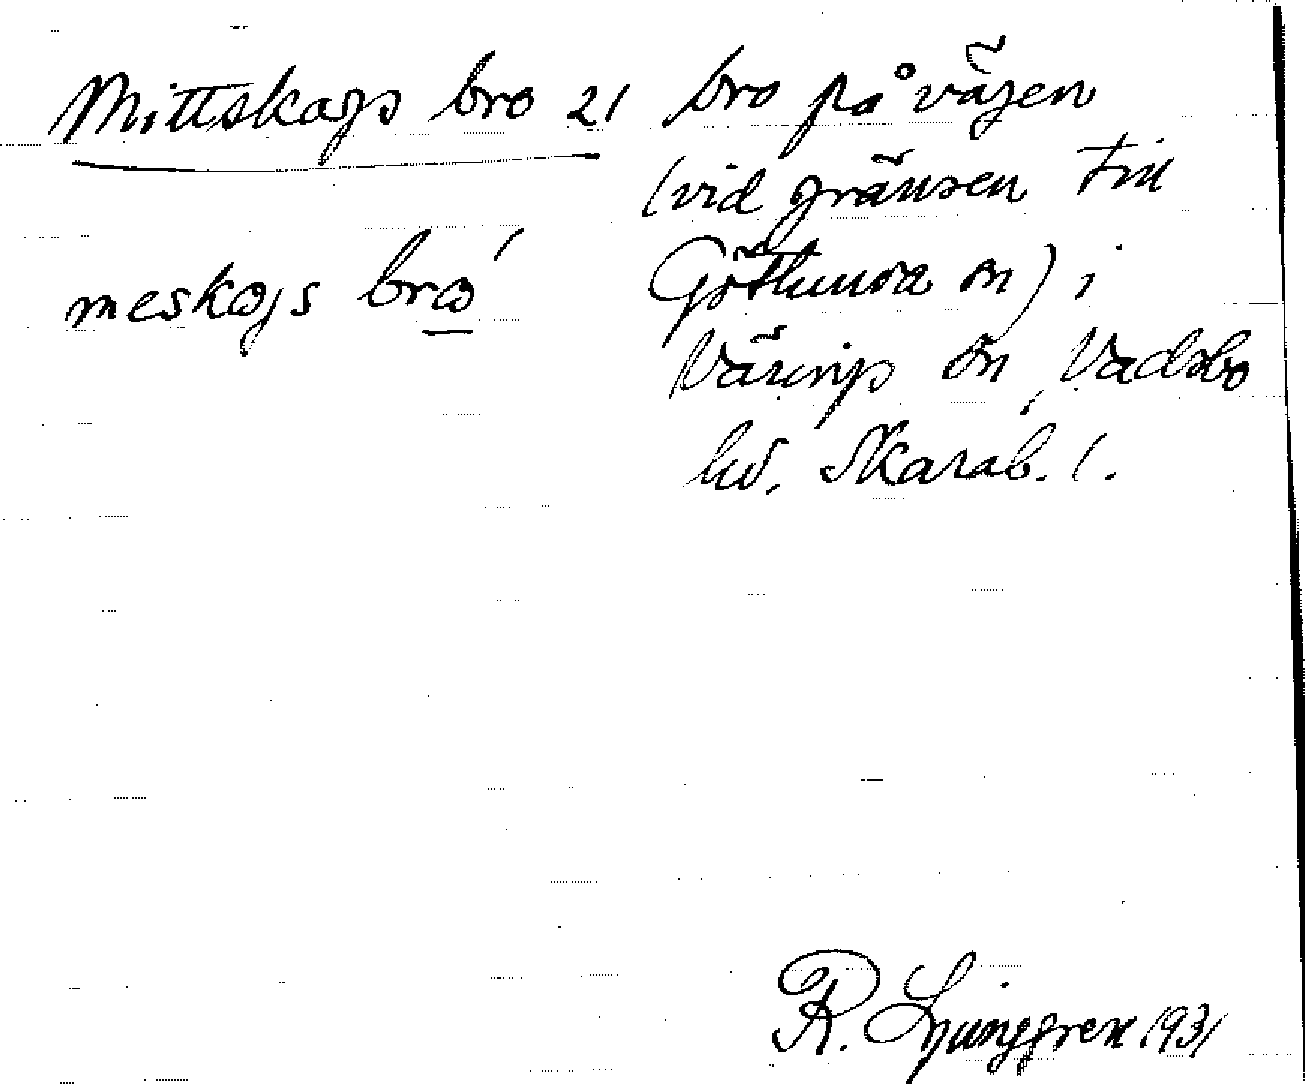 Mittskogs bro 21 bro på vägen
(vid gränsen till
meskogs bro´ Götlunda sn) i
Värings sn, Vadsbo
hd. Skarab. l.
R. Ljunggren 1931